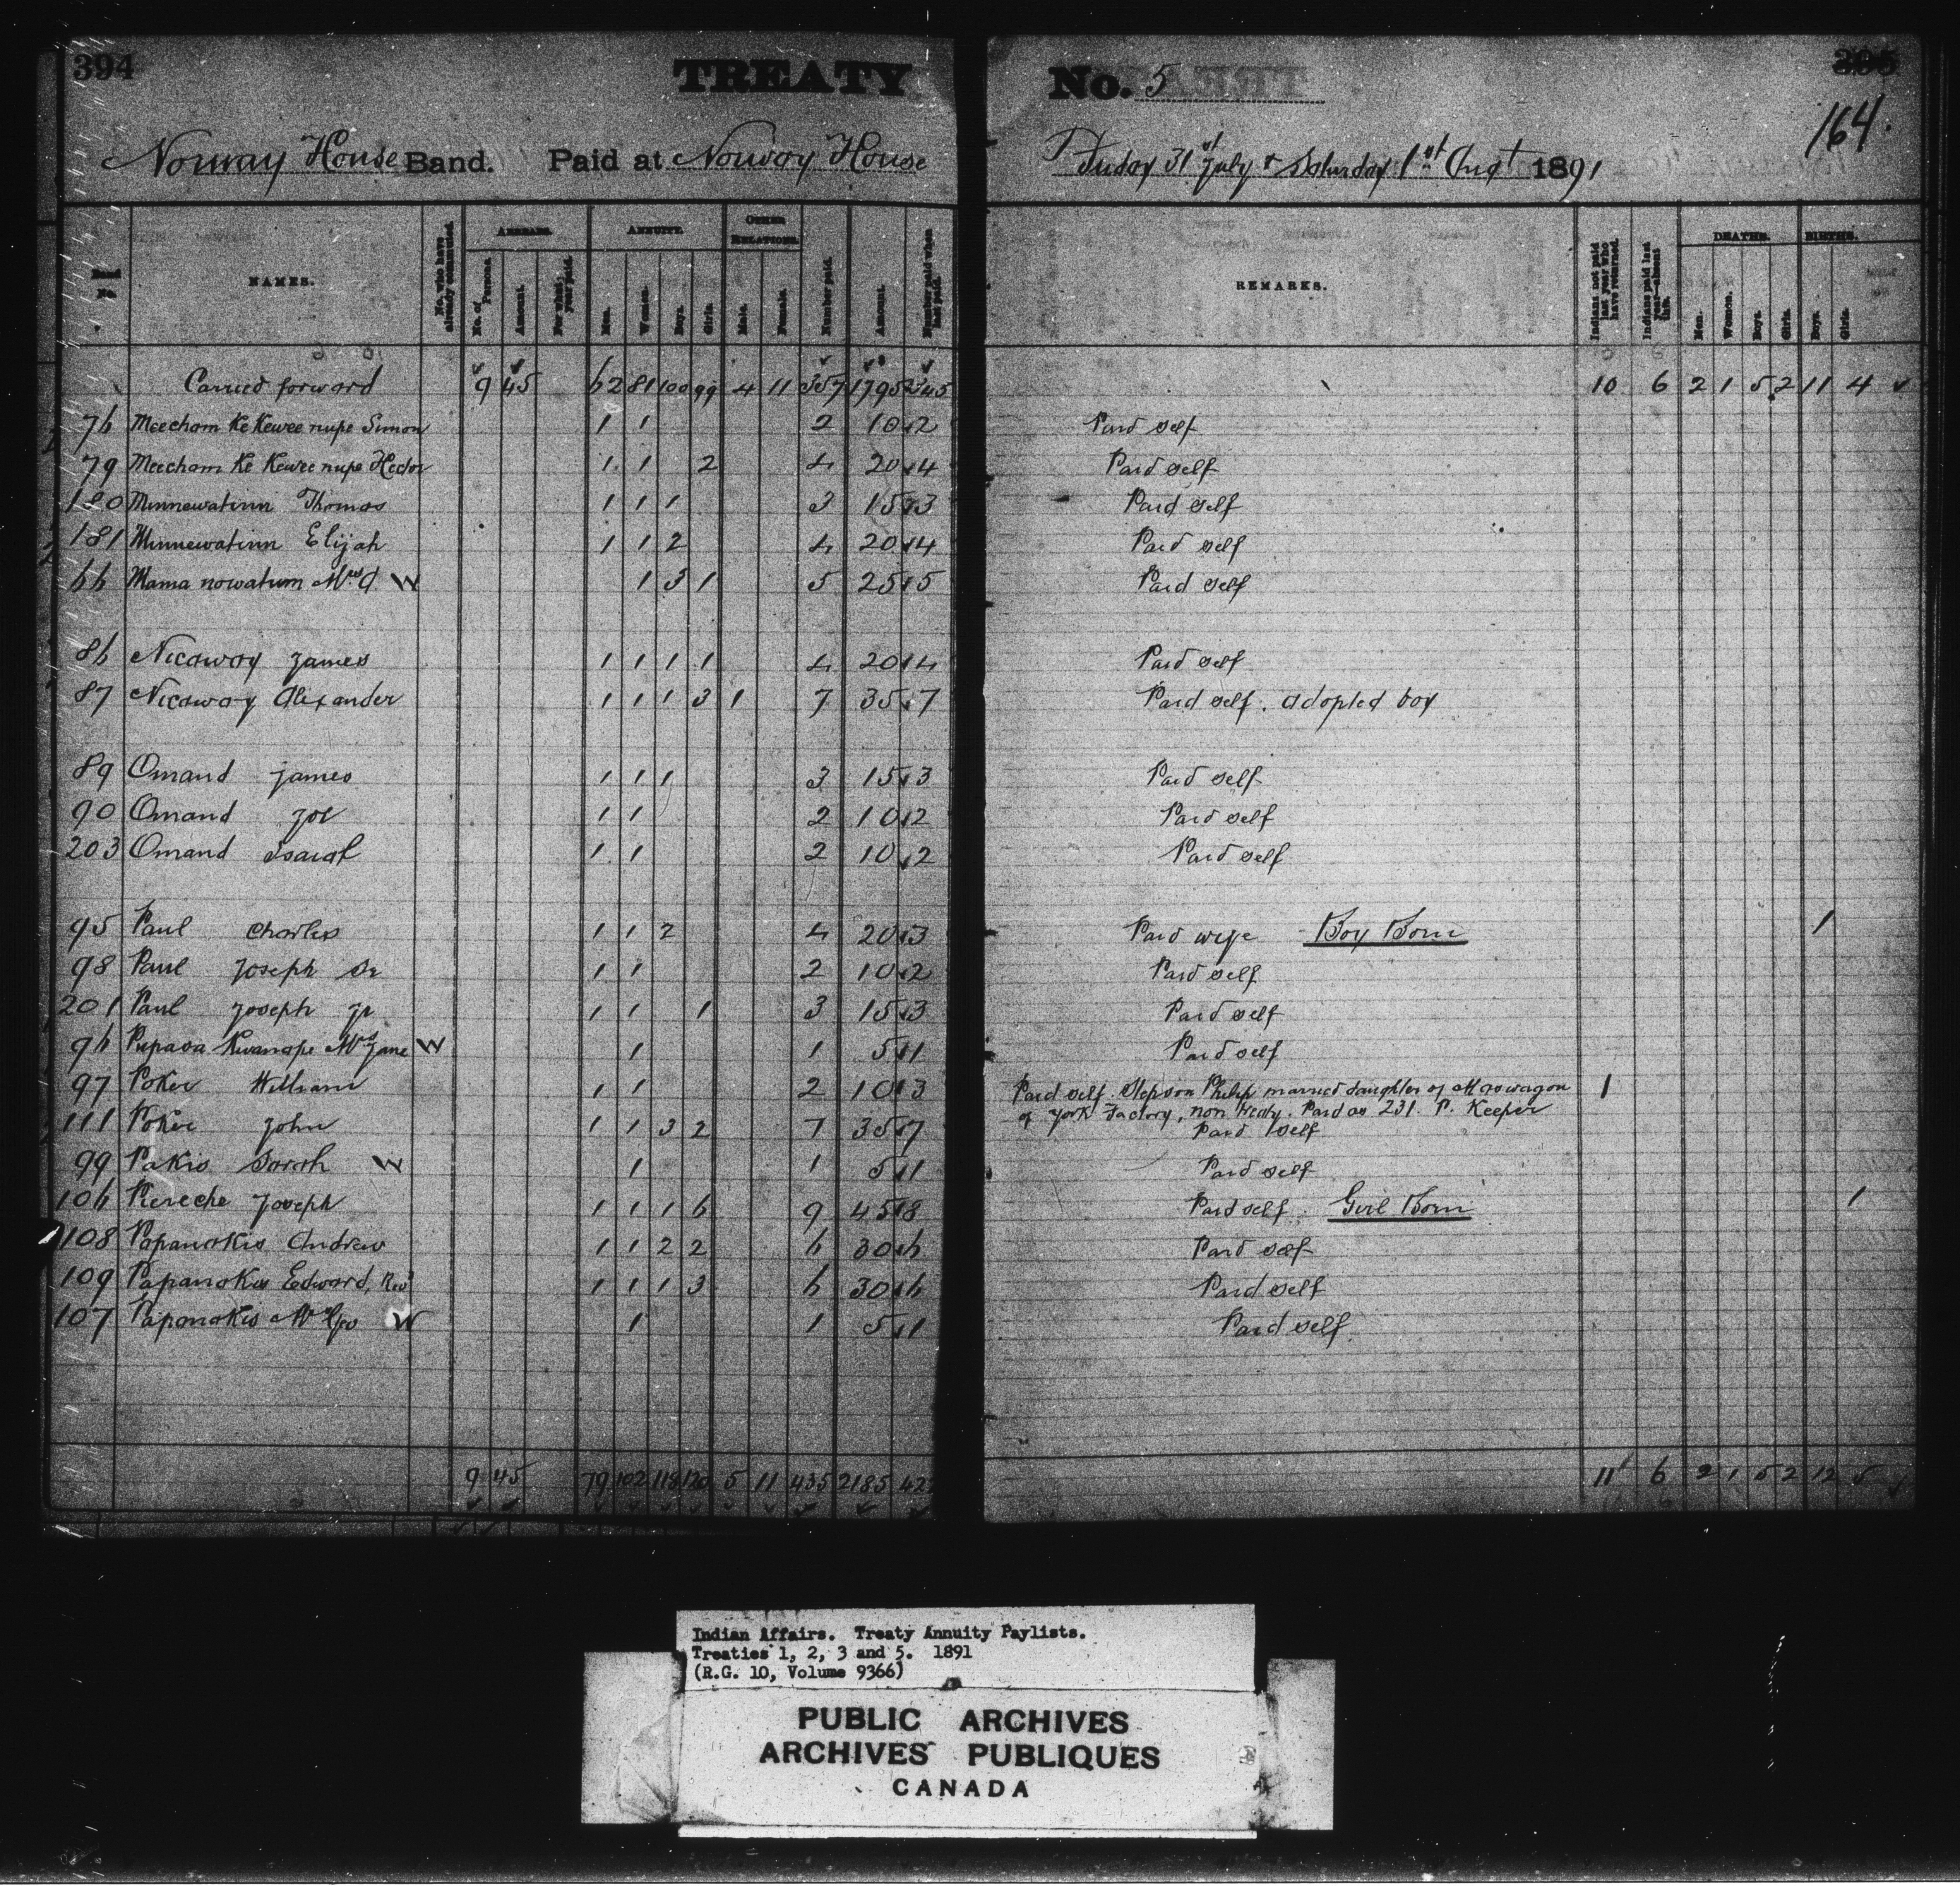 394
TREATY
No. 5
395
164.
Norway House Band. Paid at Norway House
Friday 31st July & Saturday 1st Augt 1891
Band No.
NAMES.
No. who have already commuted.
ARREARS.
No. of Persons.
Amount.
For what year paid.
ANNUITY.
Men.
Women.
Boys.
Girls.
OTHER RELATIONS.
Male.
Female.
Number paid.
Amount.
Number paid when last paid.
REMARKS.
Indians not paid last year who have returned.
Indians paid last year—absent this.
DEATHS.
Men.
Women.
Boys.
Girls.
BIRTHS.
Boys.
Girls.
Carried forward 9 45 62 81 100 99 4 11 357 1795 345 10 6 2 1 5 2 11 4
76 Meecham Ke Kewee nupe Simon 1 1 2 10 2 Paid self
79 Meecham Ke Kewee nupe Hector 1 1 2 4 20 4 Paid self
180 Minnewatinn Thomas 1 1 1 3 15 3 Paid self
181 Minnewatinn Elijah 1 1 2 4 20 4 Paid self
66 Mama nowatum Mrs C. W 1 3 1 5 25 5 Paid self
86 Nicaway James 1 1 1 1 4 20 4 Paid self
87 Nicaway Alexander 1 1 1 3 1 7 35 7 Paid self. adopted boy
89 Omand James 1 1 1 3 15 3 Paid self
90 Omand Joe 1 1 2 10 2 Paid self
203 Omand Isaiah 1 1 2 10 2 Paid self
95 Paul Charles 1 1 2 4 20 3 Paid wife Boy Born 1
98 Paul Joseph Sr 1 1 2 10 2 Paid self
201 Paul Joseph Jr 1 1 1 3 15 3 Paid self
96 Pupasa Kwanape Mrs Jane W 1 1 5 1 Paid self
97 Poker William 1 1 2 10 3 Paid self. Stepson Philip married daughter of Maswagon 1
of York Factory, non treaty. Paid as 231 P. Keeper
111 Poker John 1 1 3 2 7 35 7 Paid self
99 Pakis Sarah W 1 1 5 1 Paid self
106 Piereche Joseph 1 1 1 6 9 45 8 Paid self. Girl Born 1
108 Papanakis Andrew 1 1 2 2 6 30 6 Paid self
109 Papanakis Edward, Revd 1 1 1 3 6 30 6 Paid self
107 Papanakis Mrs W 1 1 5 1 Paid self.
9 45 79 102 118 120 5 11 435 2185 422 11 6 2 1 5 2 12 5
Indian Affairs. Treaty Annuity Paylists.
Treaties 1, 2, 3 and 5. 1891
(R.G. 10, Volume 9366)
PUBLIC ARCHIVES
ARCHIVES PUBLIQUES
CANADA